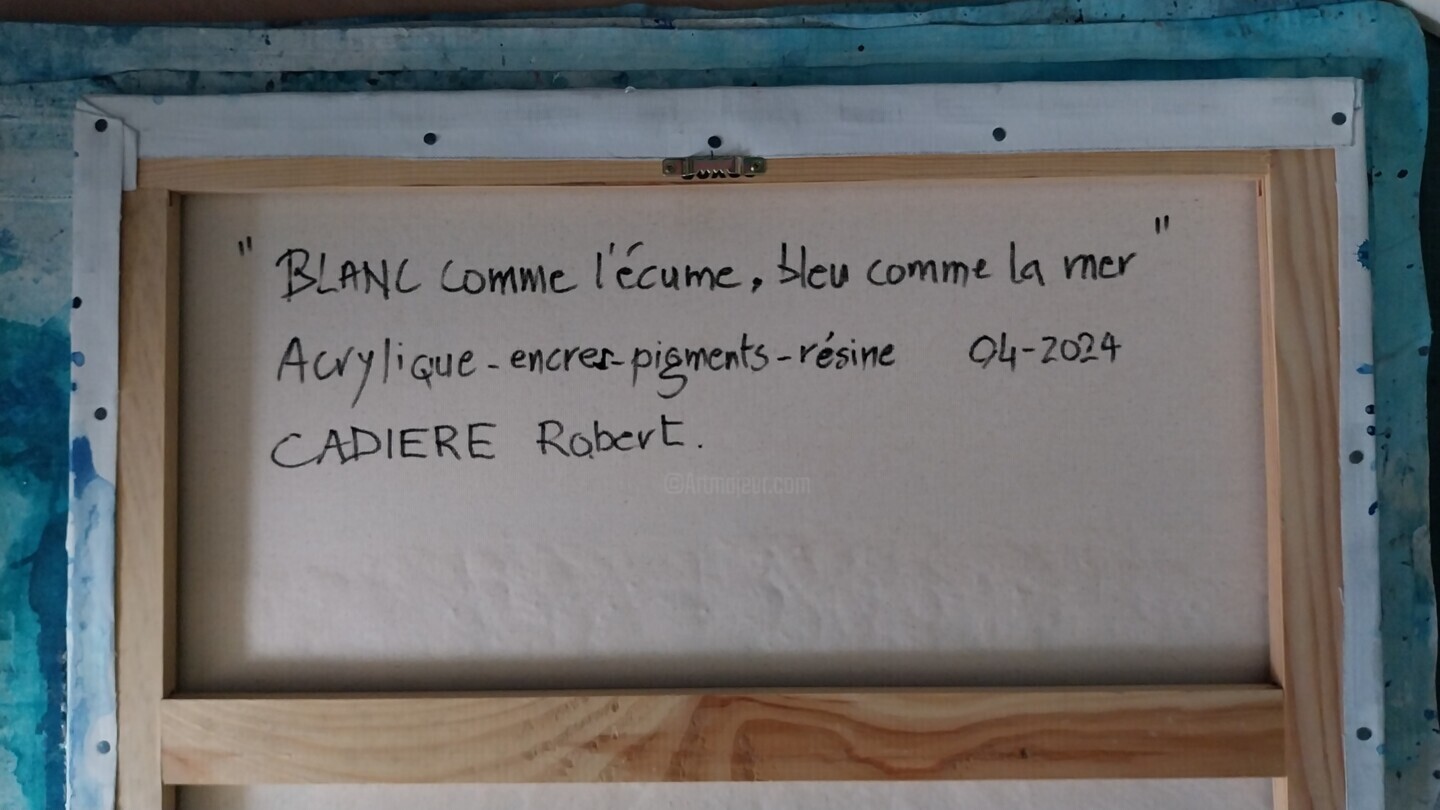 " BLANC comme l'écume, bleu comme la mer "
Acrylique - encres - pigments - résine 04-2024
CADIERE Robert.
@Artmajeur.com